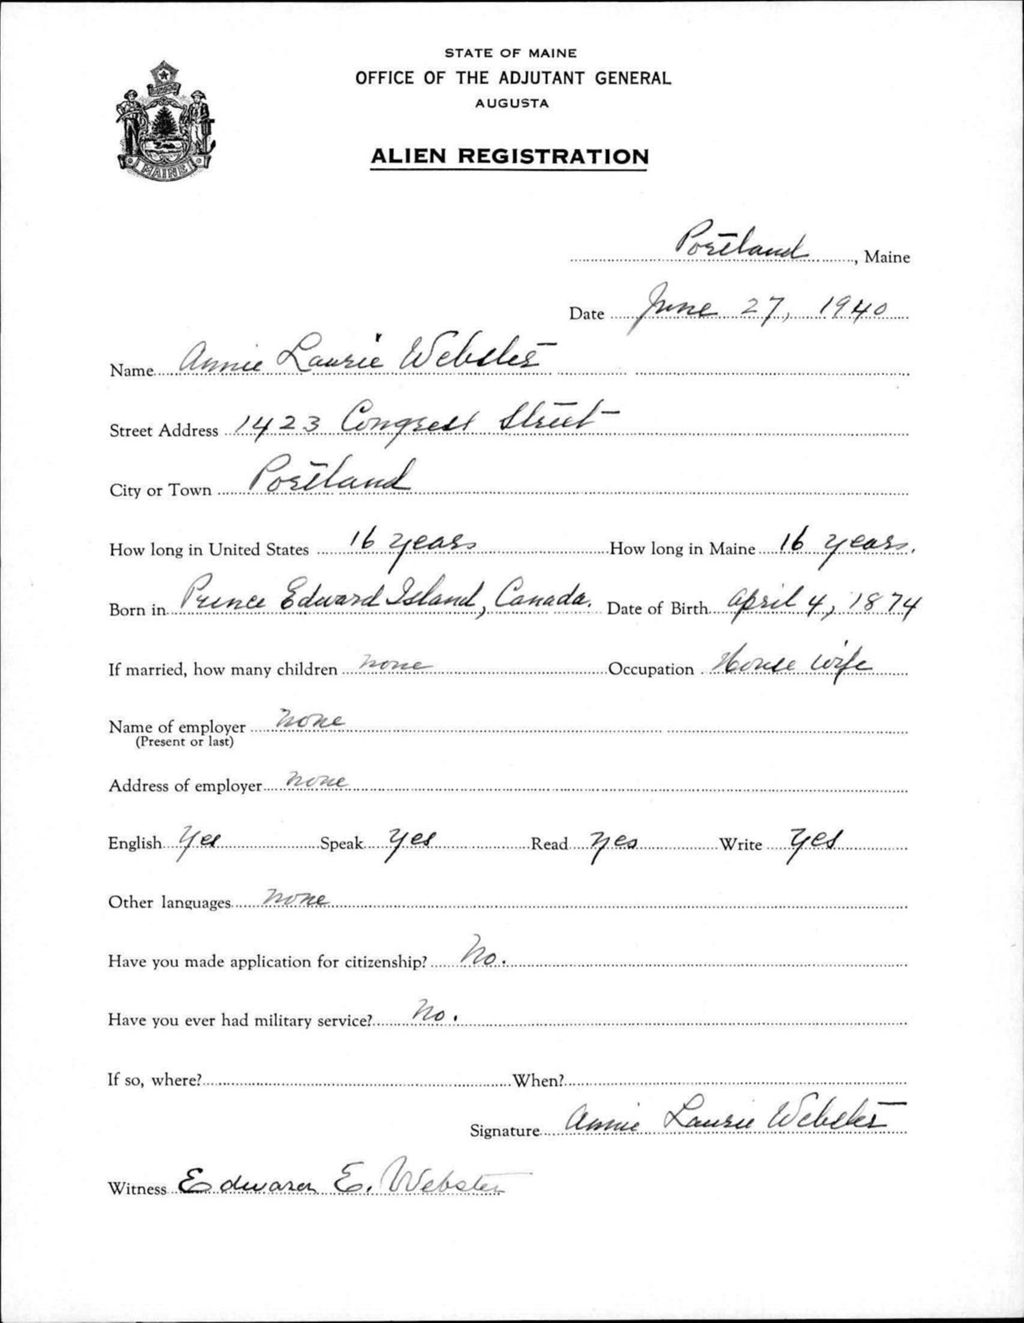 STATE OF MAINE
OFFICE OF THE ADJUTANT GENERAL
AUGUSTA
MAINE
ALIEN REGISTRATION
Portland, Maine
Date June 27, 1940
Name Annie Laurie Webster
Street Address 1423 Congress Street
City or Town Portland
How long in United States 16 years How long in Maine 16 years.
Born in Prince Edward Island, Canada. Date of Birth April 4, 1874
If married, how many children none Occupation House wife
Name of employer none
(Present or last)
Address of employer none
English Yes Speak yes Read yes Write yes
Other languages none
Have you made application for citizenship? No.
Have you ever had military service? No.
If so, where? When?
Signature Annie Laurie Webster
Witness Edward E. Webster